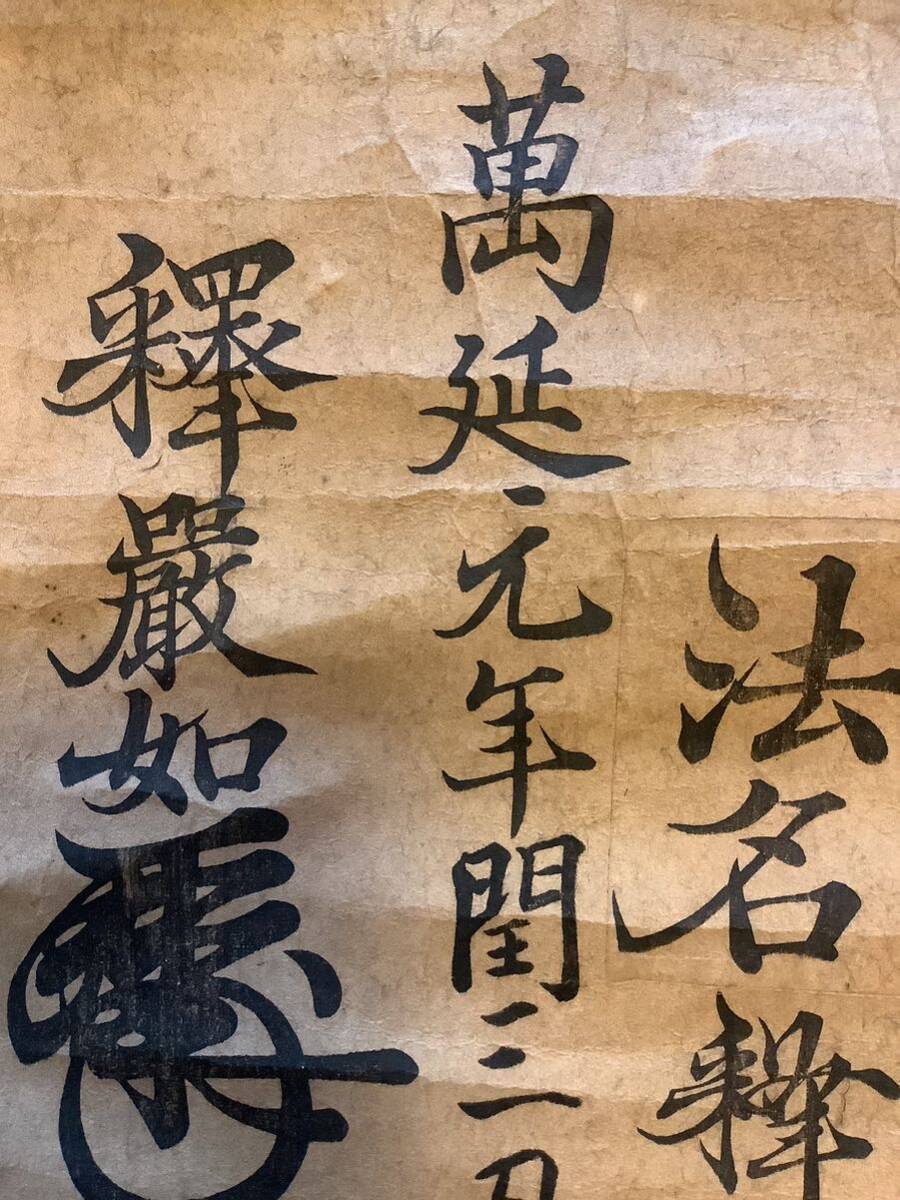 法名釋
萬延元年閏三月
釋嚴如